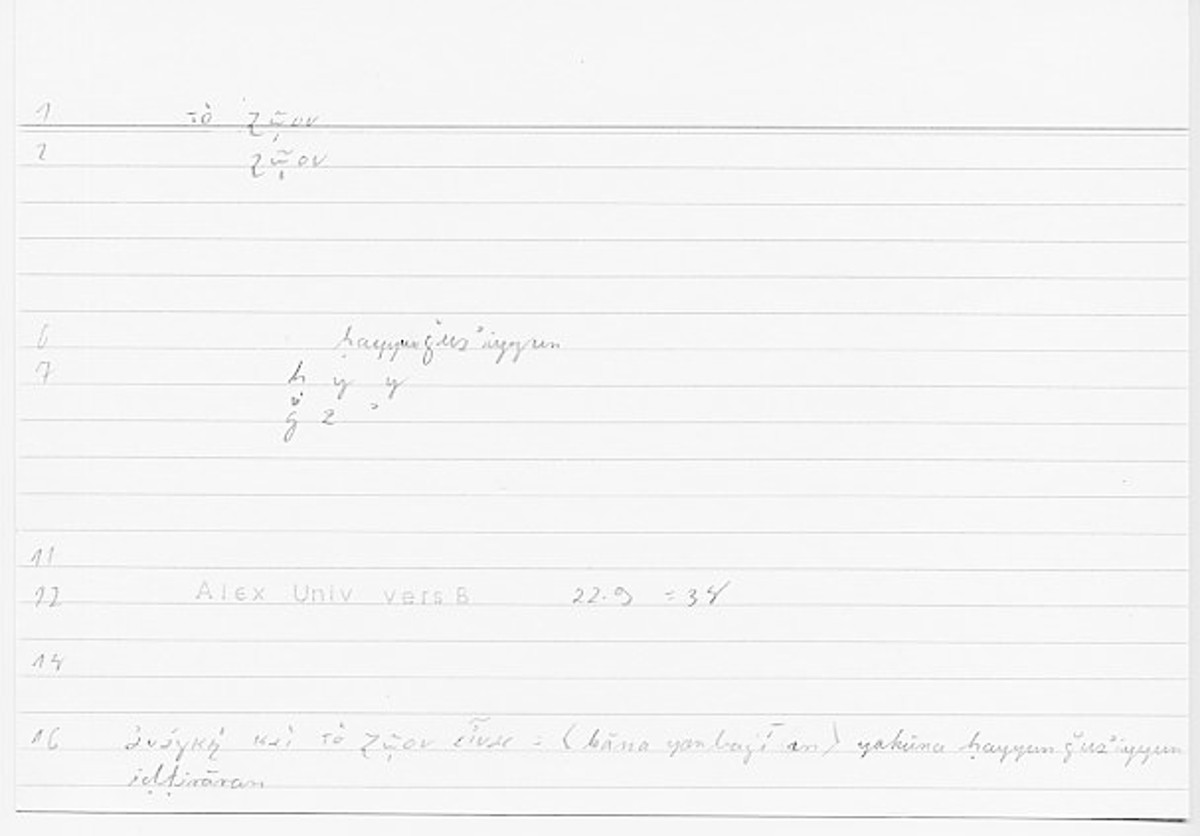 1 τὸ ζῷον
2 ζῷον
6 ḥayyun ǧuzʾiyyun
7 ḥ y y
ǧ z ʾ
11
12 Alex Univ vers B 22.9 = 34
14
16 ἀνάγκη καὶ τὸ ζῷον εἶναι = (kāna yanbaġī an) yakūna ḥayyun ǧuzʾiyyun
iḍṭirāran